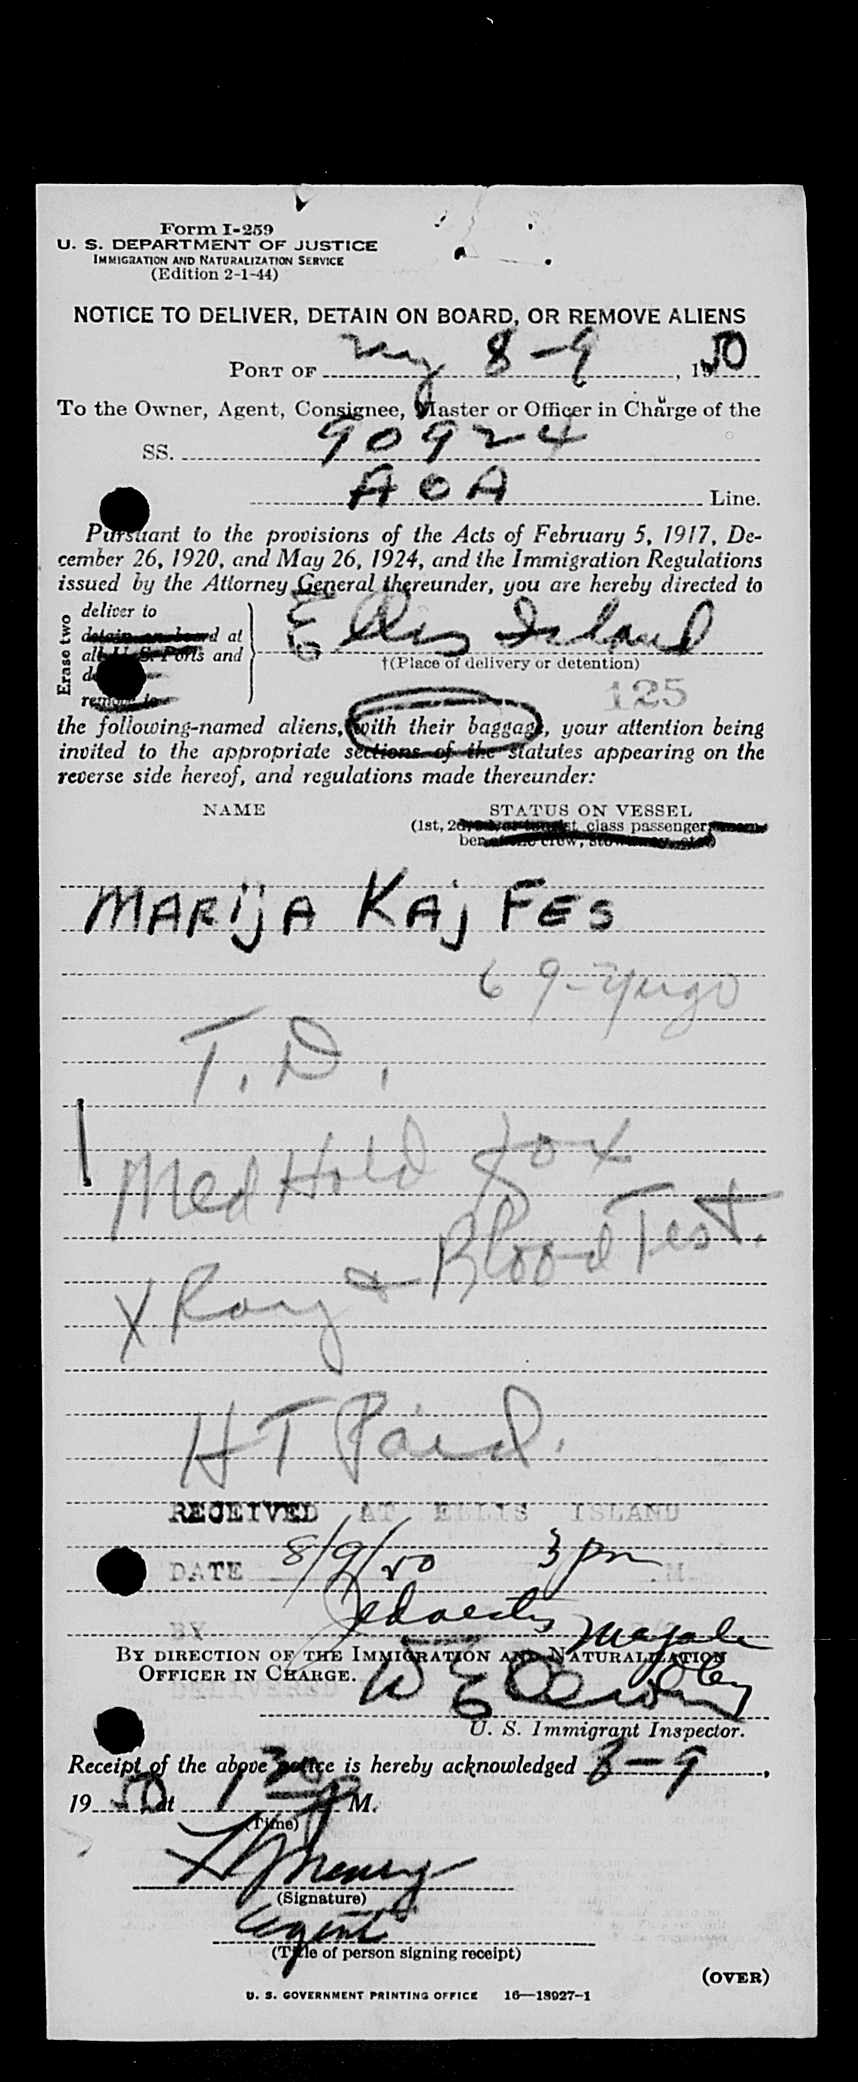 Form I-259
U. S. DEPARTMENT OF JUSTICE
IMMIGRATION AND NATURALIZATION SERVICE
(Edition 2-1-44)
NOTICE TO DELIVER, DETAIN ON BOARD, OR REMOVE ALIENS
PORT OF NY 8-9, 1950
To the Owner, Agent, Consignee, Master or Officer in Charge of the
SS. 90924
AOA Line.
Pursuant to the provisions of the Acts of February 5, 1917, De-
cember 26, 1920, and May 26, 1924, and the Immigration Regulations
issued by the Attorney General thereunder, you are hereby directed to
Erase two
deliver to
detain on board at
all U. S. Ports and
remove to
Ellis Island
†(Place of delivery or detention)
125
the following-named aliens, with their baggage, your attention being
invited to the appropriate sections of the statutes appearing on the
reverse side hereof, and regulations made thereunder:
NAME STATUS ON VESSEL
(1st, 2d, or tourist class passenger, mem-
ber of the crew, stowaway, etc.)
MARIJA KAJFES
69-Yugo
T.D.
Med Hold for
X Ray & Blood Test.
HT Paid.
RECEIVED AT ELLIS ISLAND
DATE 8/9/50 3 pm .M.
BY
BY DIRECTION OF THE IMMIGRATION AND NATURALIZATION
OFFICER IN CHARGE.
U. S. Immigrant Inspector.
Receipt of the above notice is hereby acknowledged 8-9,
1950, at 1 30 P M.
(Time)
(Signature)
Agent
(Title of person signing receipt)
(OVER)
U. S. GOVERNMENT PRINTING OFFICE 16—18927-1